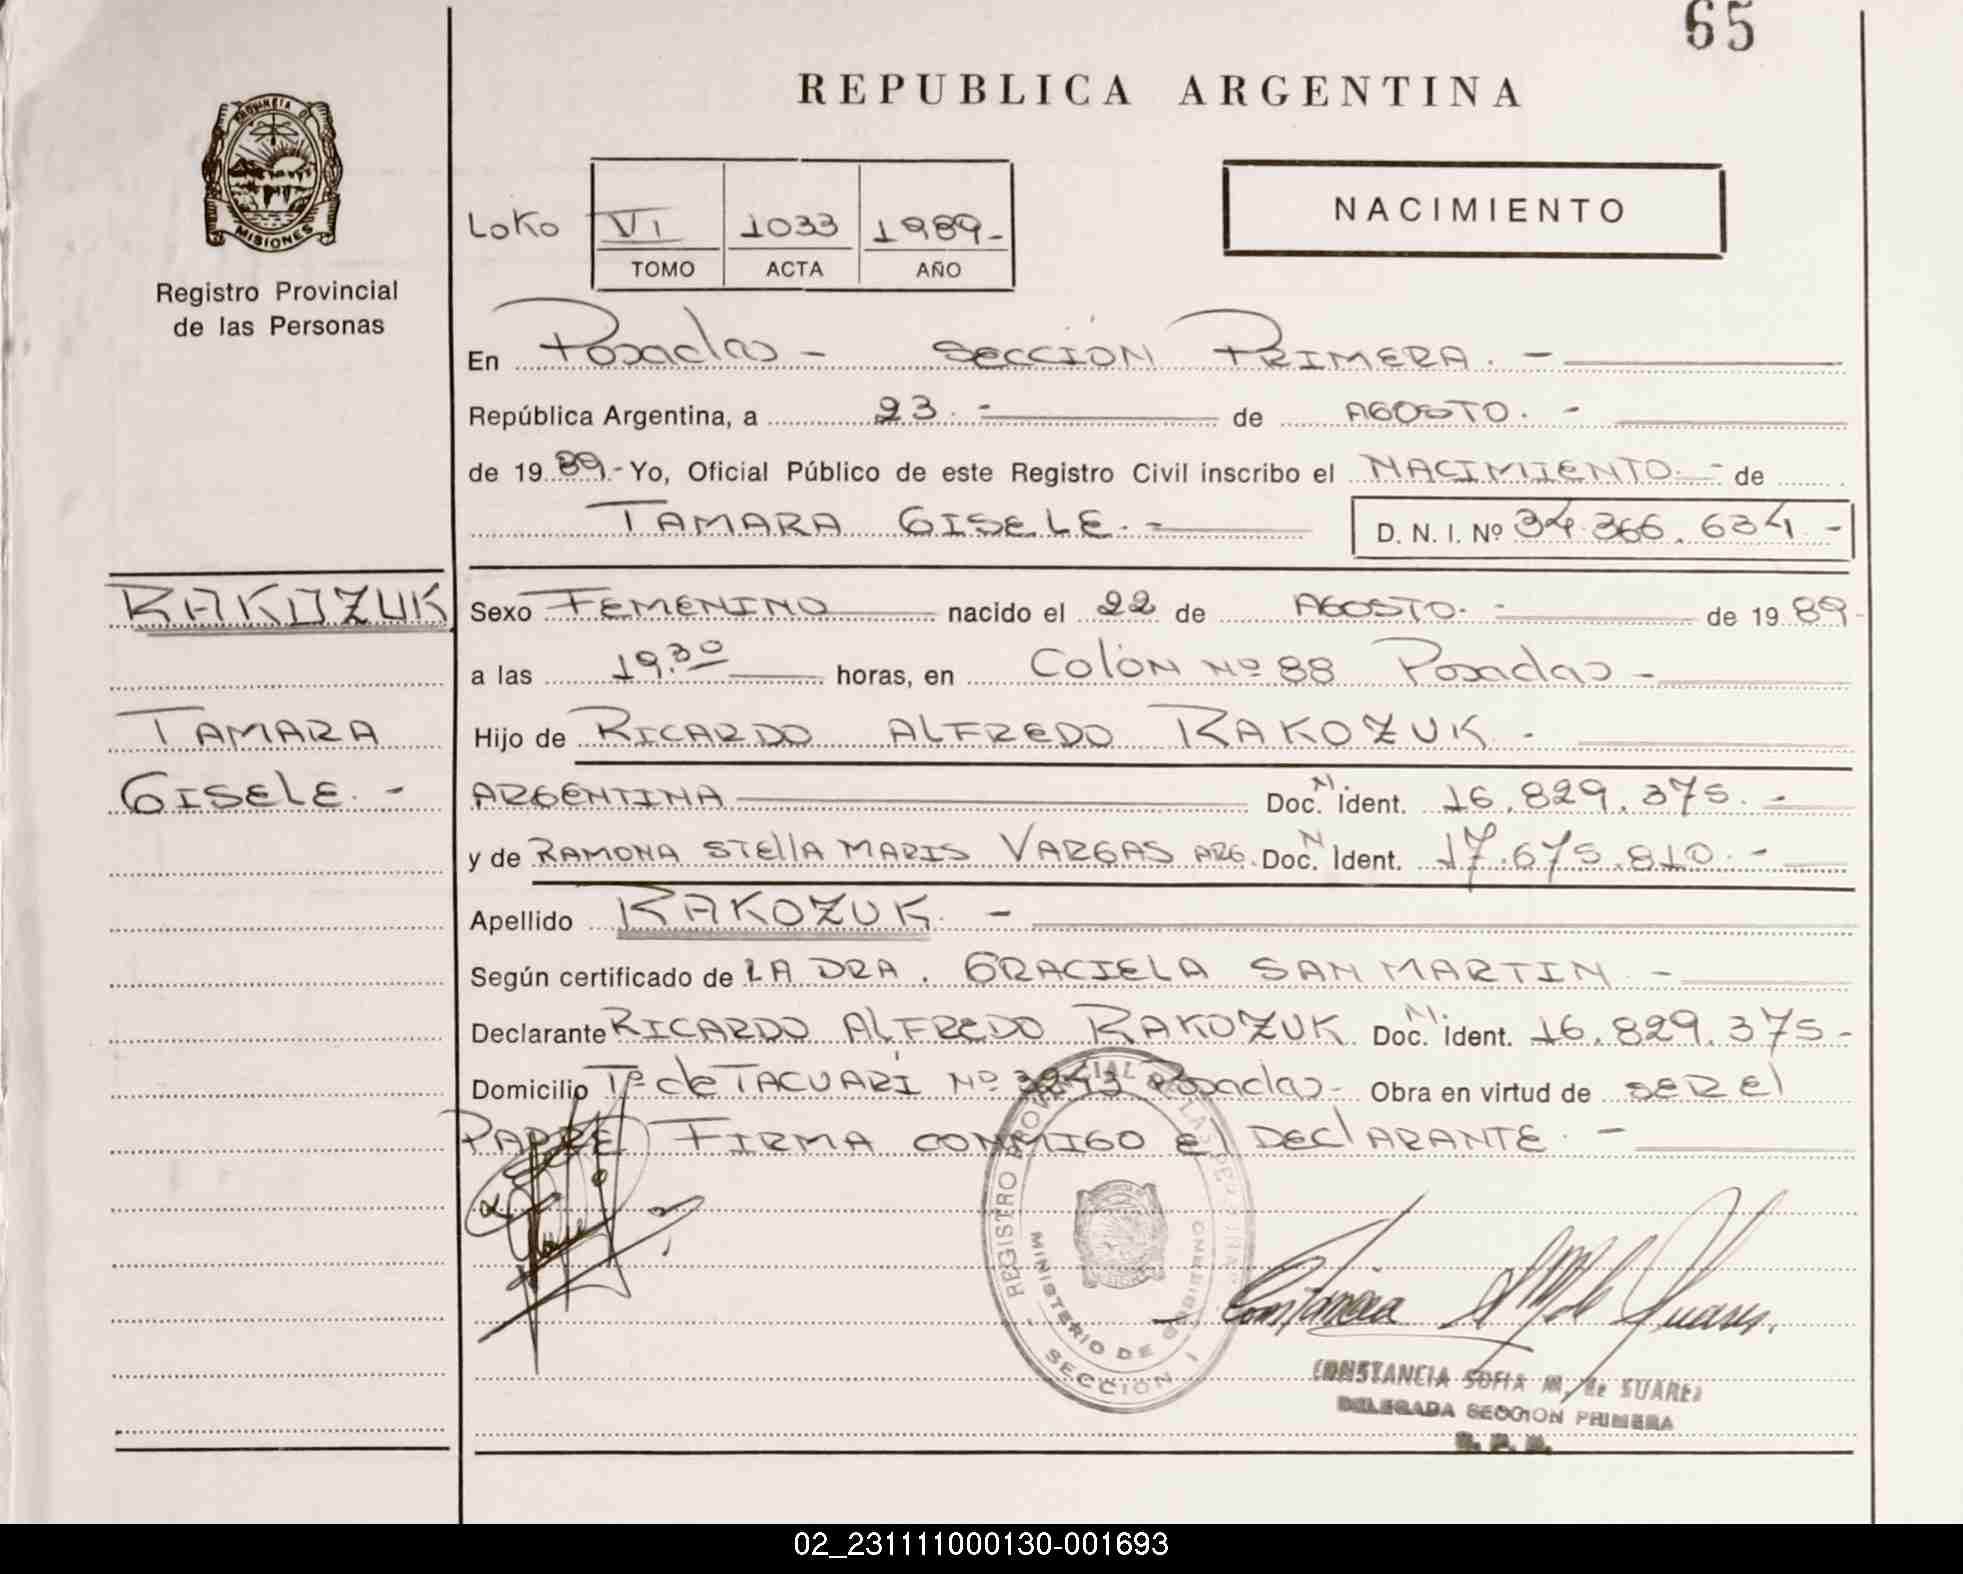 65
REPUBLICA ARGENTINA
PROVINCIA DE
MISIONES
Registro Provincial
de las Personas
LOKO VI 1033 1989-
TOMO ACTA AÑO
NACIMIENTO
En Posadas - SECCIÓN PRIMERA. -
República Argentina, a 23. - de AGOSTO. -
de 19 89.- Yo, Oficial Público de este Registro Civil inscribo el NACIMIENTO.- de
TAMARA GISELE. - D. N. I. Nº 34.366.634.-
RAKOZUK
TAMARA
GISELE. -
Sexo FEMENINO nacido el 22 de AGOSTO. - de 19 89-
a las 19.30 horas, en COLÓN Nº 88 Posadas -
Hijo de RICARDO ALFREDO RAKOZUK. -
ARGENTINA Doc. N. Ident. 16.829.375. -
y de RAMONA STELLA MARIS VARGAS ARG. Doc. N Ident. 17.675.810. -
Apellido RAKOZUK. -
Según certificado de LA DRA. GRACIELA SAN MARTIN. -
Declarante RICARDO ALFREDO RAKOZUK. Doc. N. Ident. 16.829.375-
Domicilio Tº de TACUARÍ Nº Posadas- Obra en virtud de SER El
PADRE. FIRMA CONMIGO El DEClARANTE. -
REGISTRO PROVINCIAL DE LAS PERSONAS
MINISTERIO DE GOBIERNO
SECCION 1
Constancia S M de Suarez.
CONSTANCIA SOFIA M. de SUAREZ
DELEGADA SECCION PRIMERA
R. P. P.
02_231111000130-001693